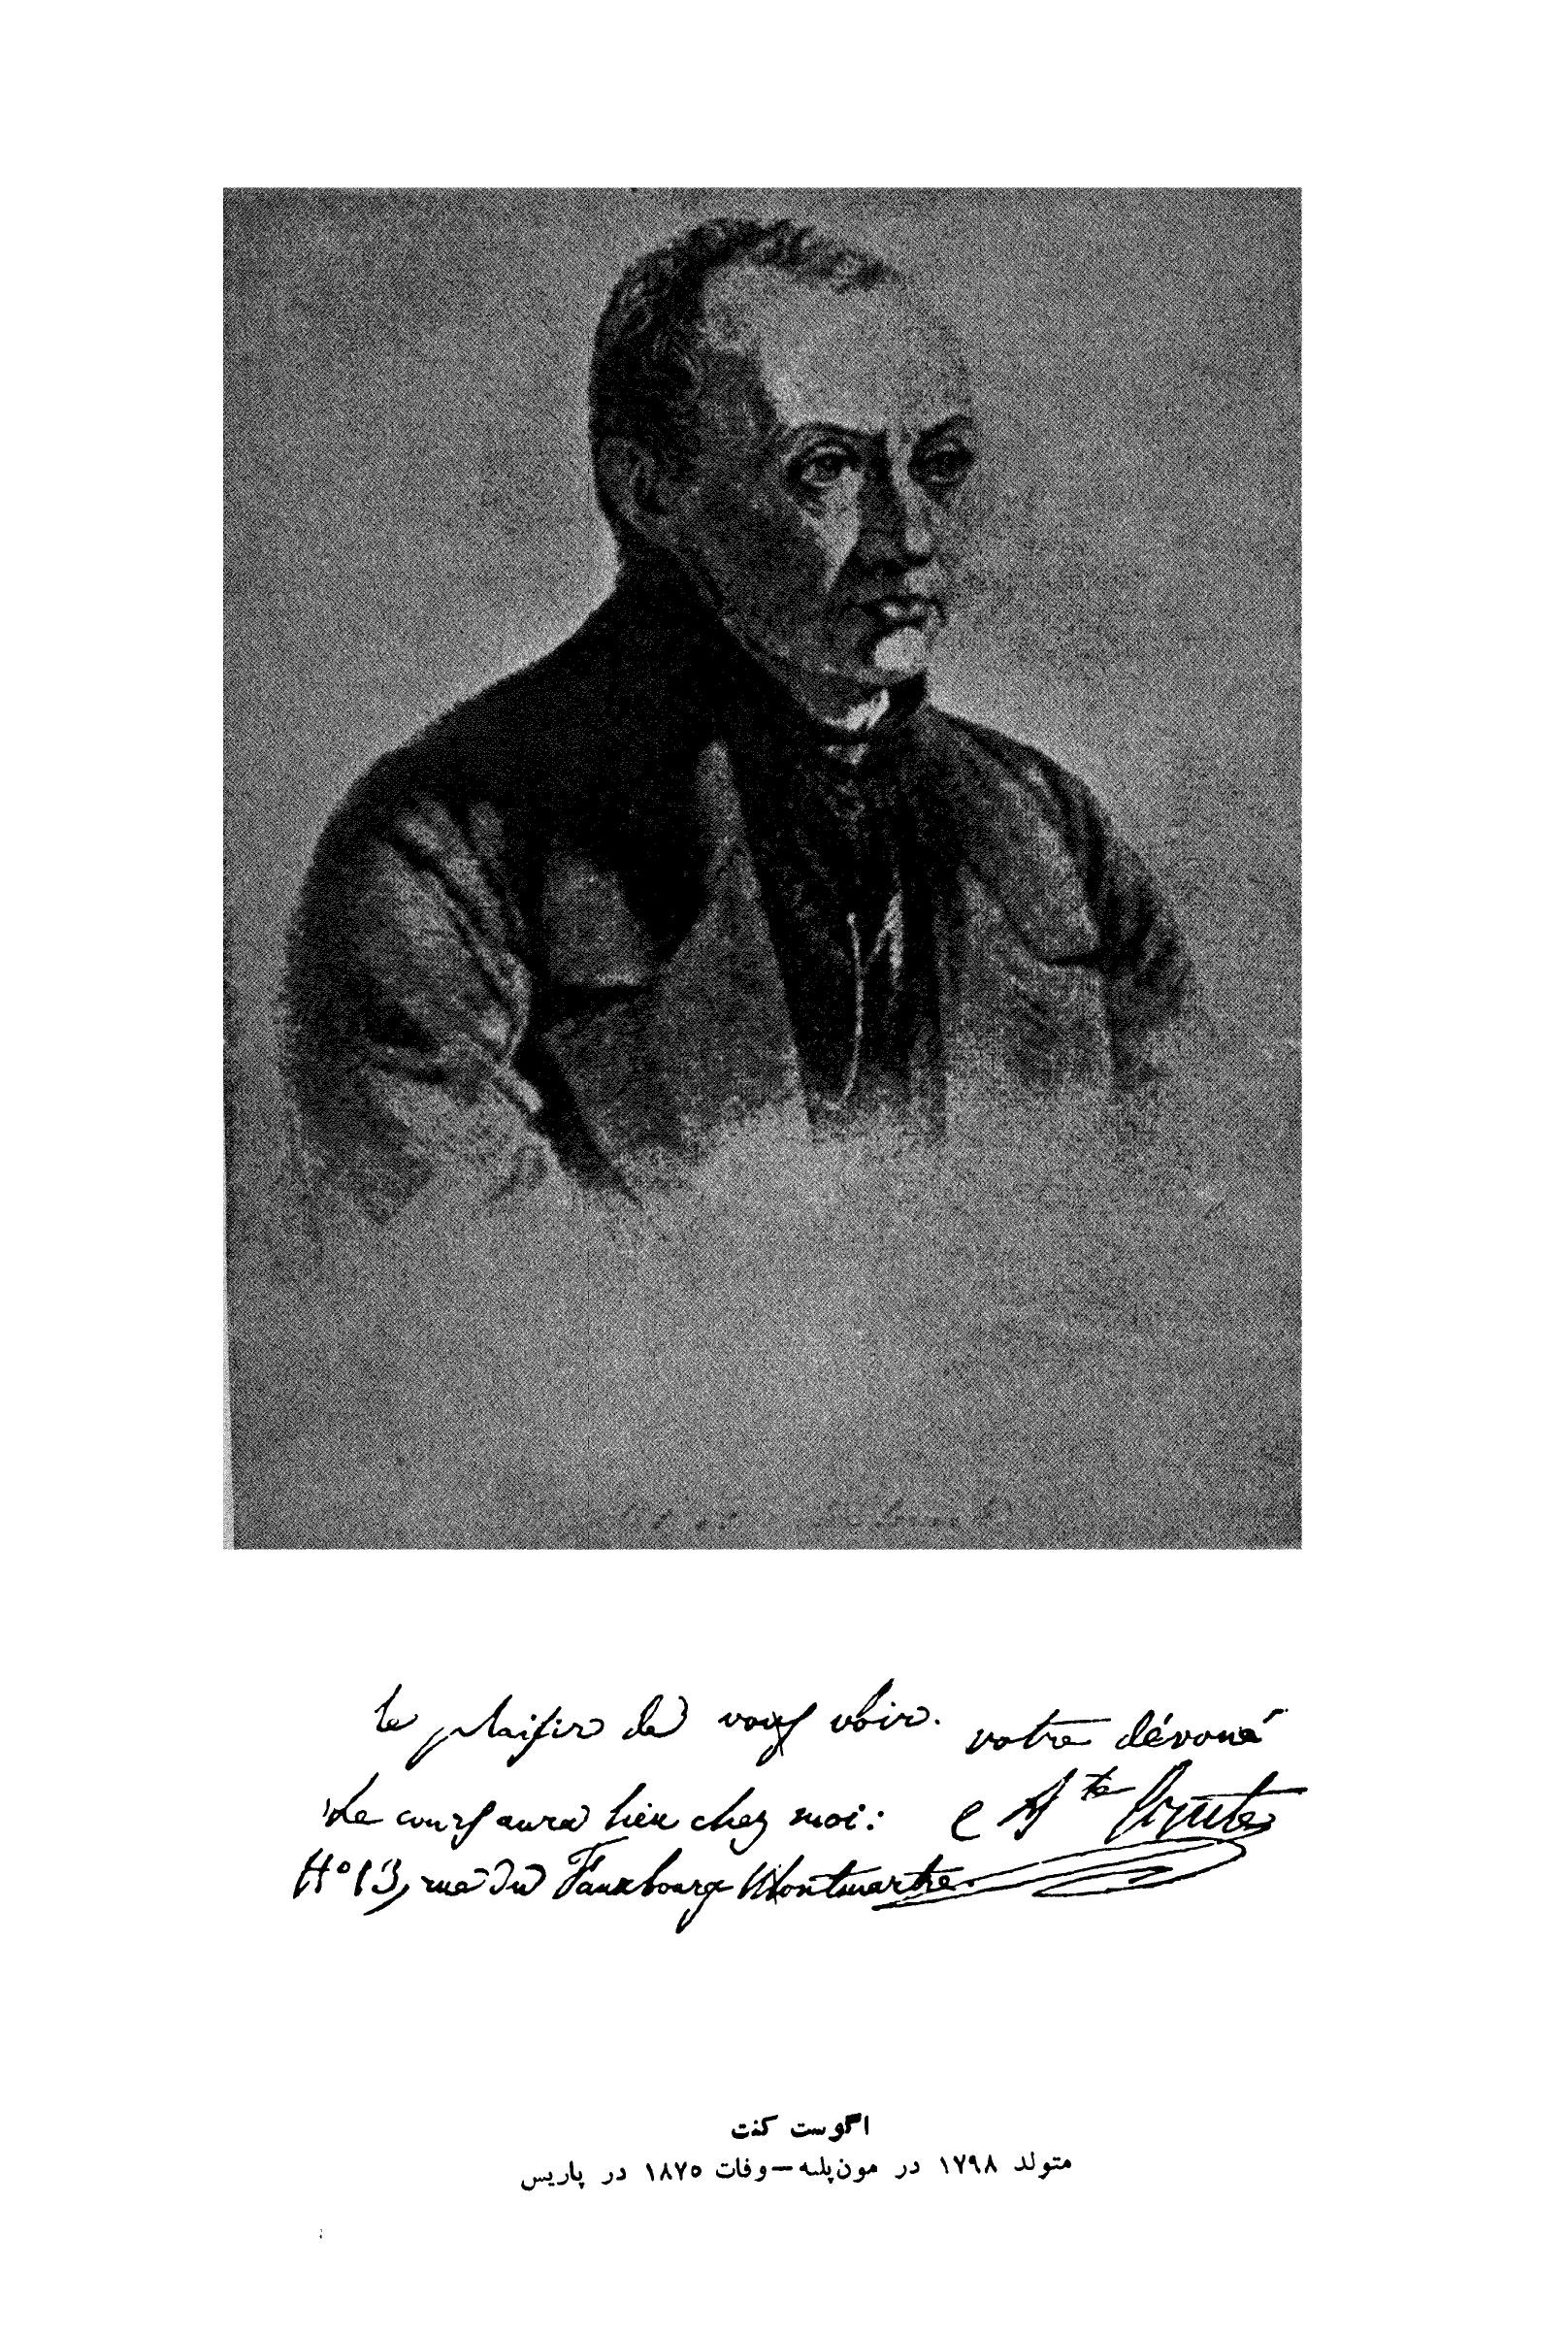 le plaisir de vous voir. votre dévoué
Le cours aura lieu chez moi: Ate Comte
N° 13, rue du Faubourg Montmartre.
اگوست کنت
متولد ۱۷۹۸ در مون‌پلیه — وفات ۱۸۷۵ در پاریس